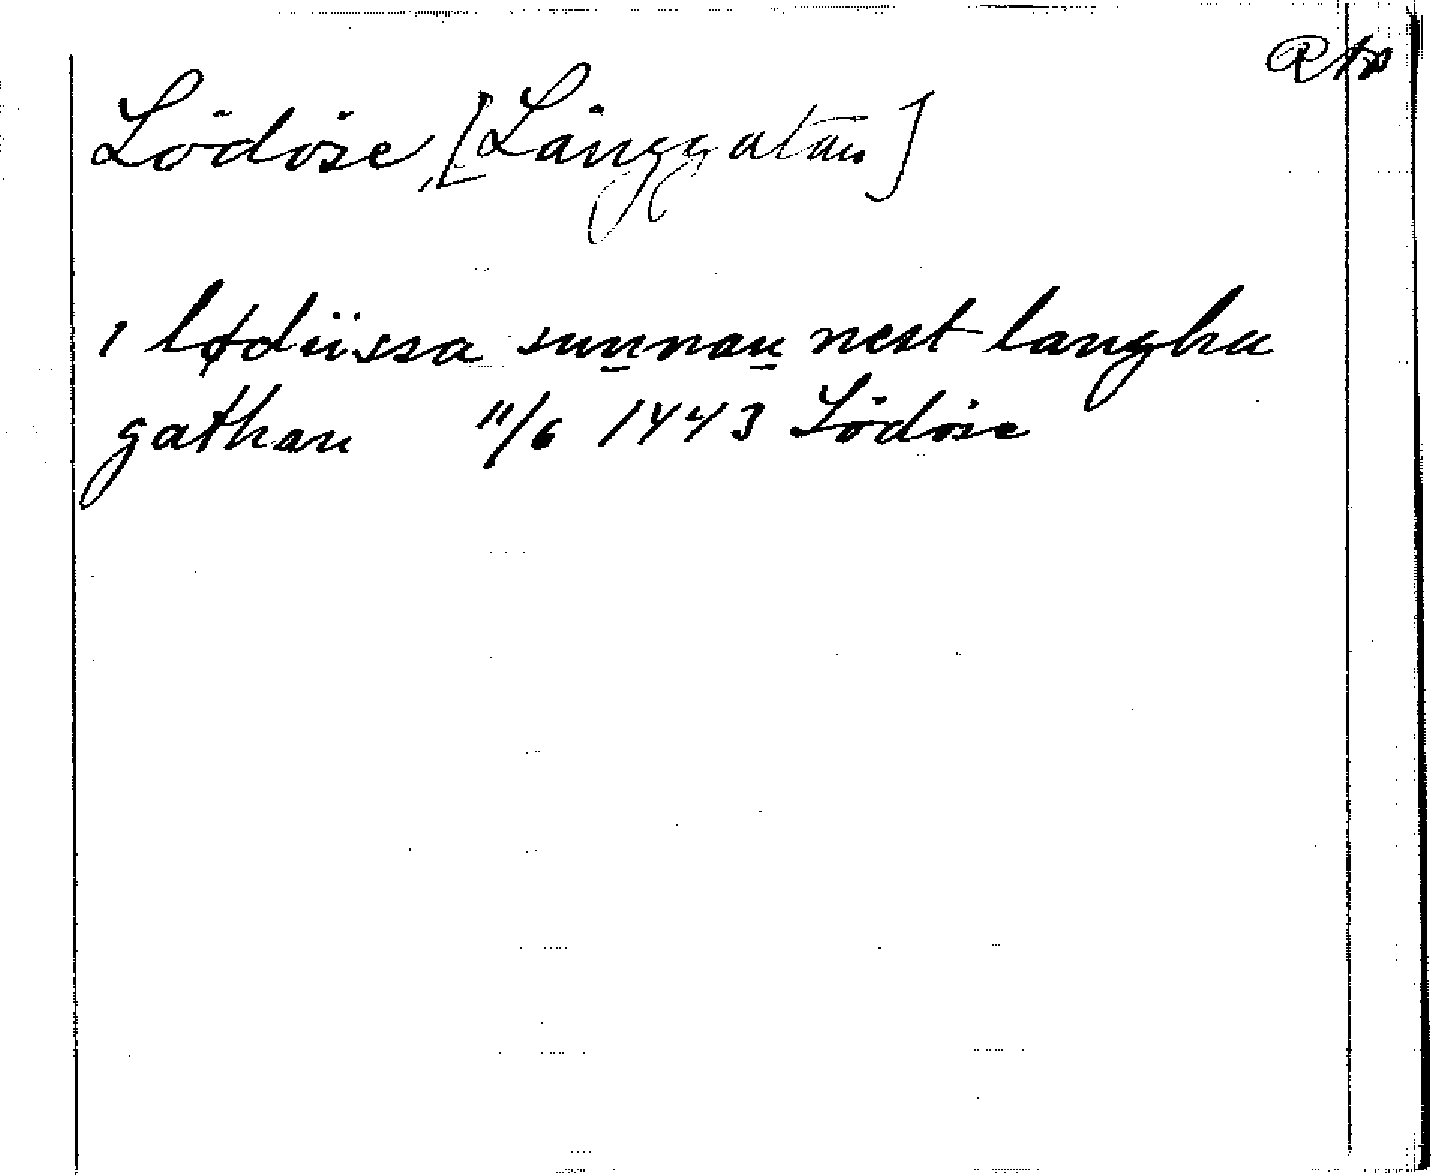 Rtp
Lödöse, [Långgatan]
i lødüssa sunnan nest langha
gathan 11/6 1443 Lödöse